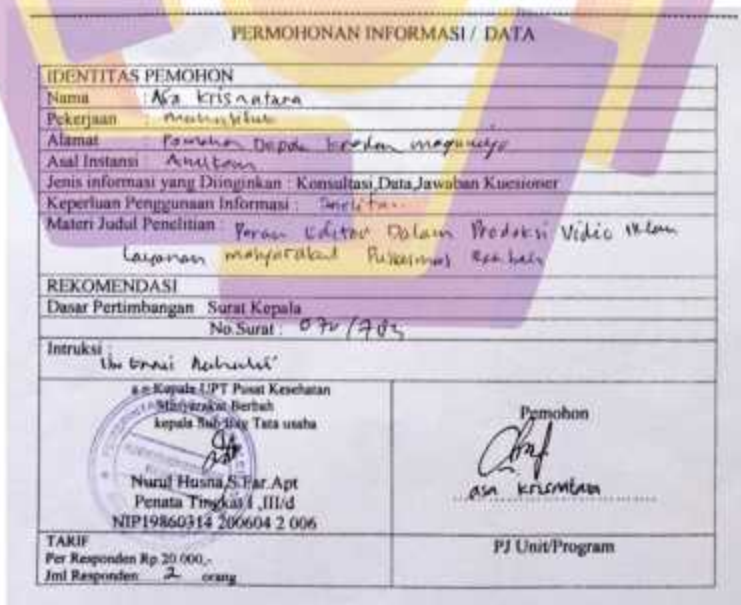 PERMOHONAN INFORMASI / DATA
IDENTITAS PEMOHON
Nama : Asa Krisnatara
Pekerjaan :
Alamat :
Asal Instansi :
Jenis informasi yang Diinginkan : Konsultasi,Data,Jawaban Kuesioner
Keperluan Penggunaan Informasi :
Materi Judul Penelitian : Peran Editor Dalam Produksi Vidio Iklan
Layanan masyarakat Puskesmas Berbah
REKOMENDASI
Dasar Pertimbangan Surat Kepala
No.Surat : 070/
Intruksi :
a.n Kepala UPT Pusat Kesehatan
Masyarakat Berbah
kepala Sub Bag Tata usaha
Nurul Husna,S.Far.Apt
Penata Tingkat I ,III/d
NIP19860314 200604 2 006
Pemohon
asa krisnatara
TARIF
Per Responden Rp.20.000,-
Jml Responden 2 orang
PJ Unit/Program